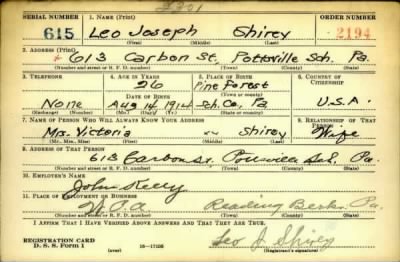 SERIAL NUMBER 1. NAME (Print) ORDER NUMBER
615 Leo Joseph Shirey 2194
(First) (Middle) (Last)
2. ADDRESS (Print)
613 Carbon St, Pottsville Sch. Pa.
(Number and street or R. F. D. number) (Town) (County) (State)
3. TELEPHONE 4. AGE IN YEARS 5. PLACE OF BIRTH 6. COUNTRY OF CITIZENSHIP
26 Pine Forest
DATE OF BIRTH (Town or county)
None Aug 14 1914 Sch. Co, Pa. U.S.A.
(Mo.) (Day) (Yr.) (State or country)
7. NAME OF PERSON WHO WILL ALWAYS KNOW YOUR ADDRESS 8. RELATIONSHIP OF THAT PERSON
Mrs. Victoria Shirey Wife
(Mr., Mrs., Miss) (First) (Middle) (Last)
9. ADDRESS OF THAT PERSON
613 Carbon St. Pottsville Sch. Pa.
(Number and street or R. F. D. number) (Town) (County) (State)
10. EMPLOYER'S NAME
John Kelly
11. PLACE OF EMPLOYMENT OR BUSINESS
W.P.A. Reading Berks. Pa.
(Number and street or R. F. D. number) (Town) (County) (State)
I AFFIRM THAT I HAVE VERIFIED ABOVE ANSWERS AND THAT THEY ARE TRUE.
REGISTRATION CARD
D. S. S. Form 1 16—17105 Leo J Shirey
(Registrant's signature)